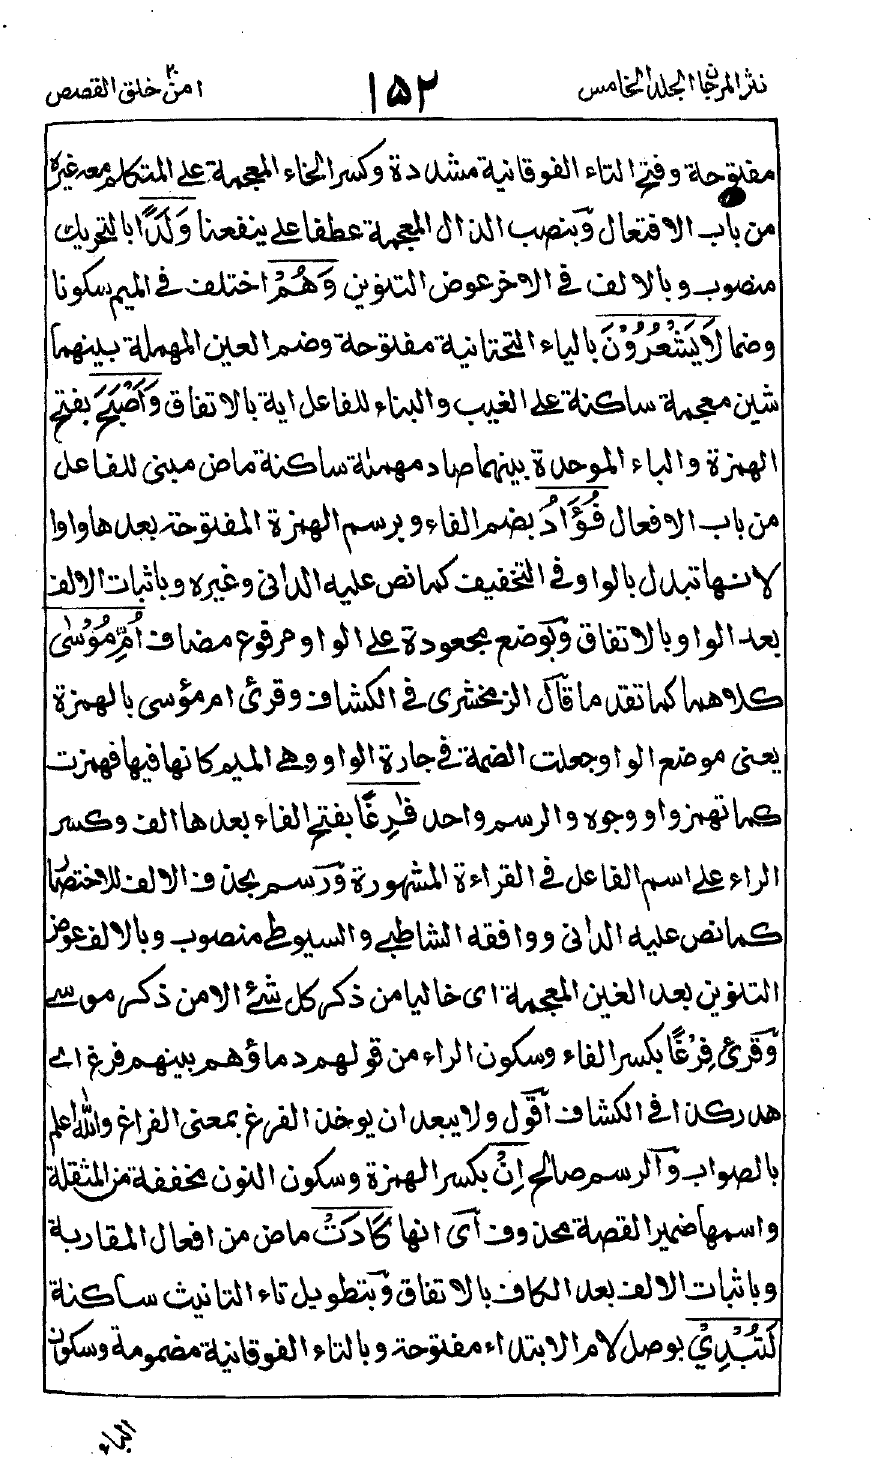 نثر المرجان الجلد الخامس ١٥٢ امن خلق ٢٠ القصص
مفتوحة وفتح التاء الفوقانية مشددة وكسر الخاء المعجمة على المتكلم معه غيره
من باب الافتعال وبنصب الذال المعجمة عطفا على ينفعنا وَلَدًا بالتحريك
منصوب وبالالف في الاخر عوض التنوين وَهُمْ اختلف في الميم سكونا
وضما لَايَشْعُرُوْنَ بالياء التحتانية مفتوحة وضم العين المهملة بينهما
شين معجمة ساكنة على الغيب والبناء للفاعل اية بالاتفاق وَاَصْبَحَ بفتح
الهمزة والباء الموحدة بينهما صاد مهملة ساكنة ماض مبنى للفاعل
من باب الافعال فُؤَادُ بضم الفاء وبرسم الهمزة المفتوحة بعدها واوا
لانها تبدل بالواو في التخفيف كما نص عليه الدانى وغيره وباثبات الالف
بعد الواو بالاتفاق وبوضع مجعودة على الواو مرفوع مضاف اُمِّ مُوْسٰى
كلاهما كما تقدما قال الزمخشرى في الكشاف وقرئ ام مؤسى بالهمزة
يعنى موضع الواو جعلت الضمة في جارة الواو وهي الميم كانها فيها فهمزت
كما تهمز واو وجوه والرسم واحد فٰرِغًا بفتح الفاء بعدها الف وكسر
الراء على اسم الفاعل في القراءة المشهورة ورسم بحذف الالف للاختصار
كما نص عليه الدانى ووافقه الشاطبي والسيوطي منصوب وبالالف عوض
التنوين بعد الغين المعجمة اى خاليا من ذكر كل شئ الا من ذكر موسے
وقرئ فِرْغًا بكسر الفاء وسكون الراء من قولهم دماؤهم بينهم فرغ اے
هدر كذا في الكشاف اقول ولا يبعد ان يوخذ الفرغ بمعنى الفراغ والله اعلم
بالصواب والرسم صالح اِنْ بكسر الهمزة وسكون النون مخففة من المثقلة
واسمها ضمير القصة محذوف اى انها كَادَتْ ماض من افعال المقاربة
وباثبات الالف بعد الكاف بالاتفاق وبتطويل تاء التانيث ساكنة
لَتُبْدِيْ بوصل لام الابتداء مفتوحة وبالتاء الفوقانية مضمومة وسكون
الباء